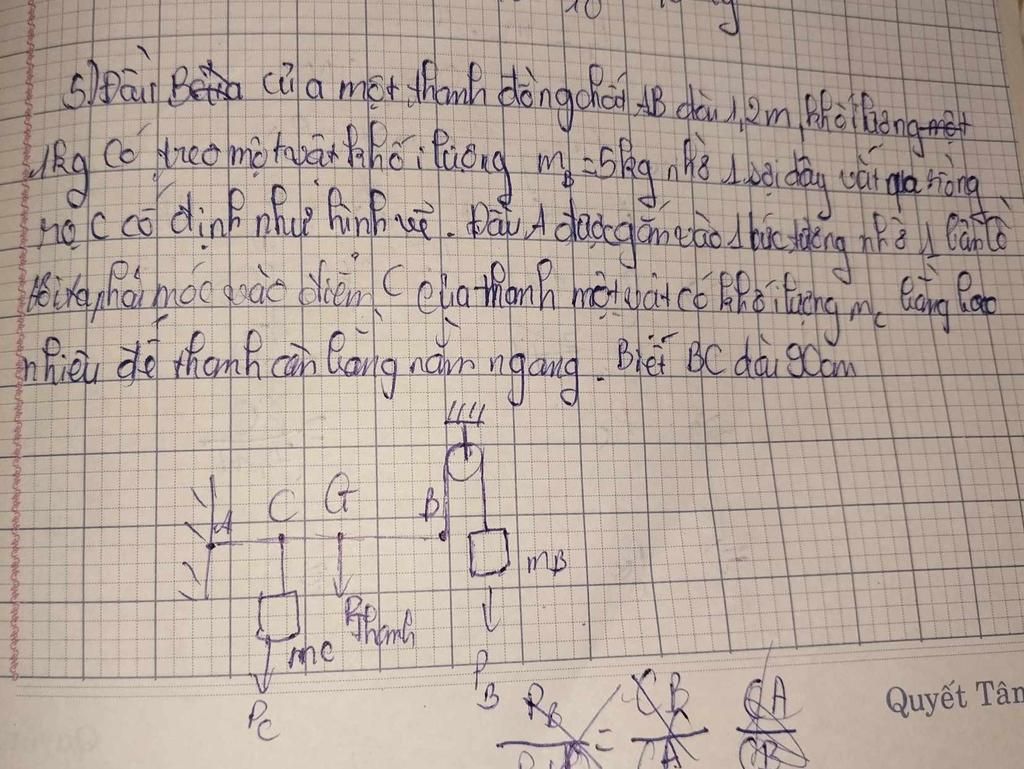 10
5) Đầu B của một thanh đồng chất AB dài 1,2m, khối lượng
1kg có treo một vật khối lượng m_B = 5kg nhờ 1 sợi dây vắt qua ròng
rọc C cố định như hình vẽ. Đầu A được gắn vào 1 bức tường nhờ 1 bản lề
Hỏi ta phải móc vào điểm C của thanh một vật có khối lượng m_c bằng bao
nhiêu để thanh cân bằng nằm ngang. Biết BC dài 90cm
A C G B
m_B
P_thanh
m_C
P_C
P_B
P_B = CB CA
A
Quyết Tân